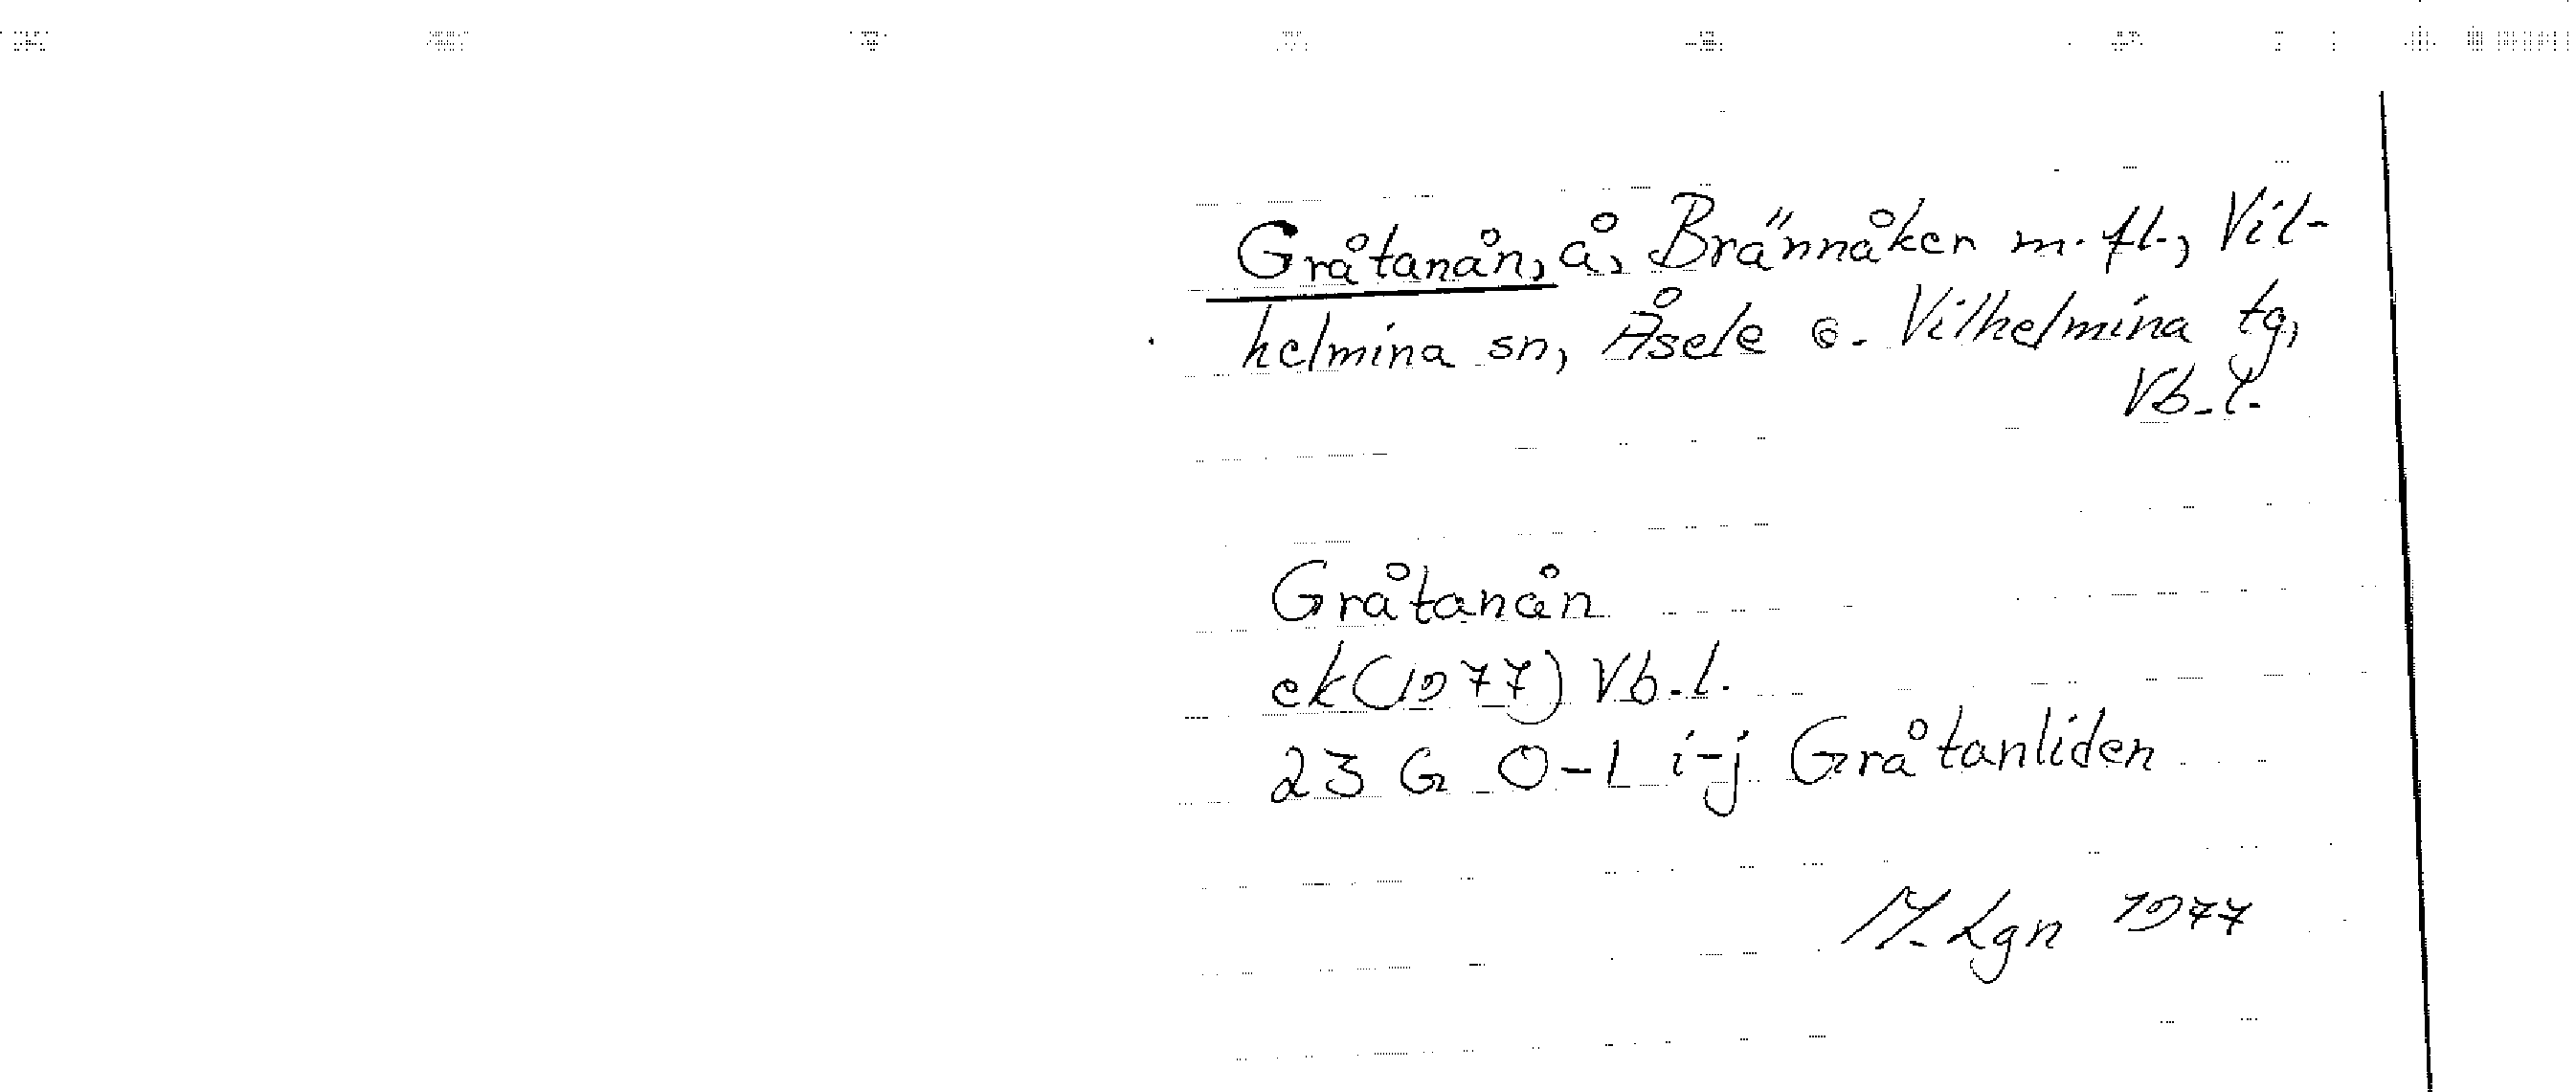 Gråtanån, å, Brännåker m.fl., Vil-
helmina sn, Åsele o. Vilhelmina tg,
Vb.l.
Gråtanån
ek(1977) Vb.l.
23 G 0-1 i-j Gråtanliden
M. Lgn 1977